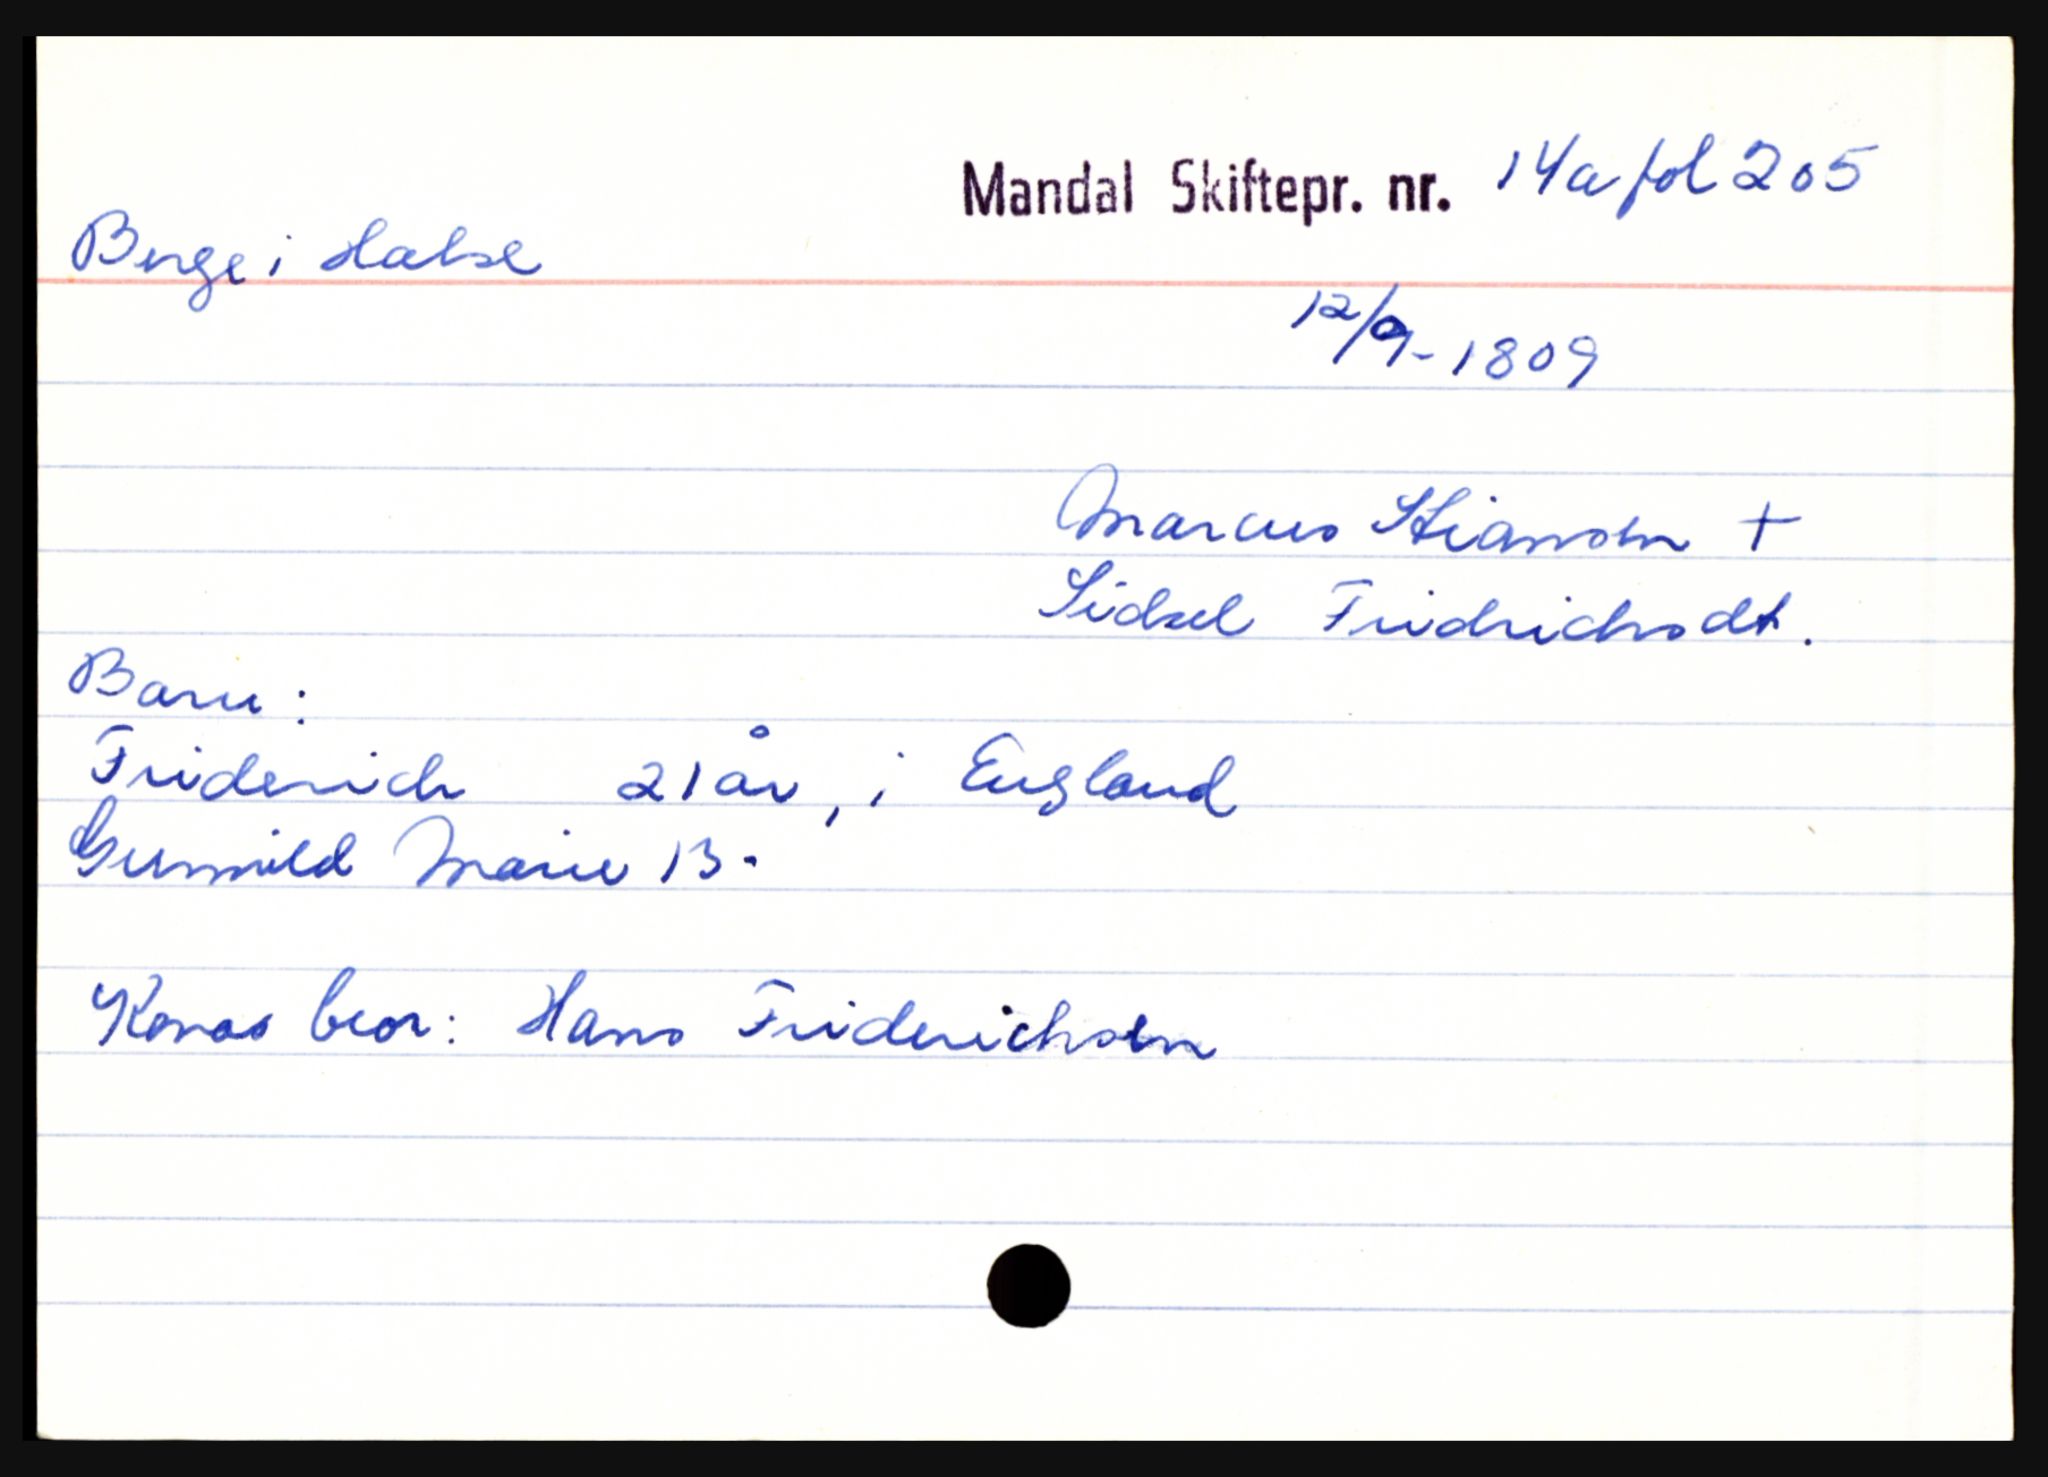 Mandal Skiftepr. nr. 14a fol 205
Berge i Halse
12/9-1809
Marcus Stiansen +
Sidsel Fridrichsdt.
Barn:
Friderich 21 år, i England
Gunnild Marie 13.
Konas bror: Hans Friderichsen